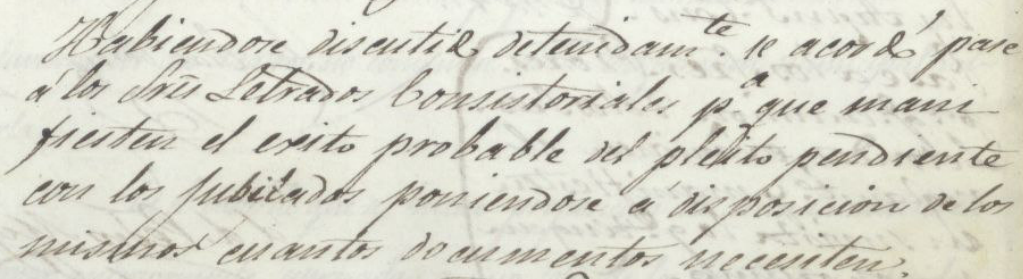 Habiendose discutido detenidam.te se acordó pase
á los Sres Letrados Consistoriales p.a que mani
fiesten el exito probable del pleito pendiente
con los jubilados poniendose a disposicion de los
mismos cuantos documentos necesiten